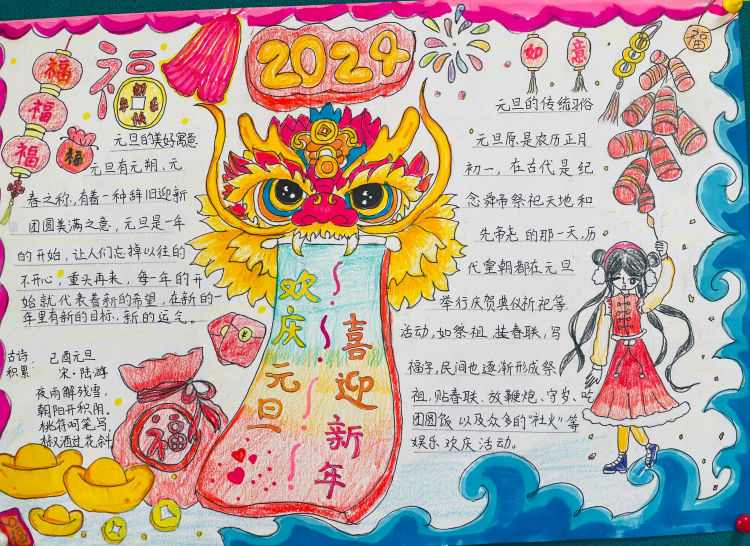 2024
福
福
福
福
福
元旦的美好寓意
元旦有元朔、元
春之称,有着一种辞旧迎新
团圆美满之意,元旦是一年
的开始,让人们忘掉以往的
不开心,重头再来,每一年的开
始就代表着新的希望,在新的一
年里有新的目标,新的运气。
古诗积累:
己酉元旦
宋·陆游
夜雨解残雪,
朝阳开积阴。
桃符呵笔写,
椒酒过花斜
福
欢庆元旦
喜迎新年
如意
福
元旦的传统习俗
元旦原是农历正月
初一,在古代是纪
念舜帝祭祀天地和
先帝尧的那一天,历
代皇朝都在元旦
举行庆贺典仪祈祀等
活动,如祭祖,挂春联,写
福字,民间也逐渐形成祭
祖,贴春联、放鞭炮、守岁、吃
团圆饭以及众多的“社火”等
娱乐欢庆活动。